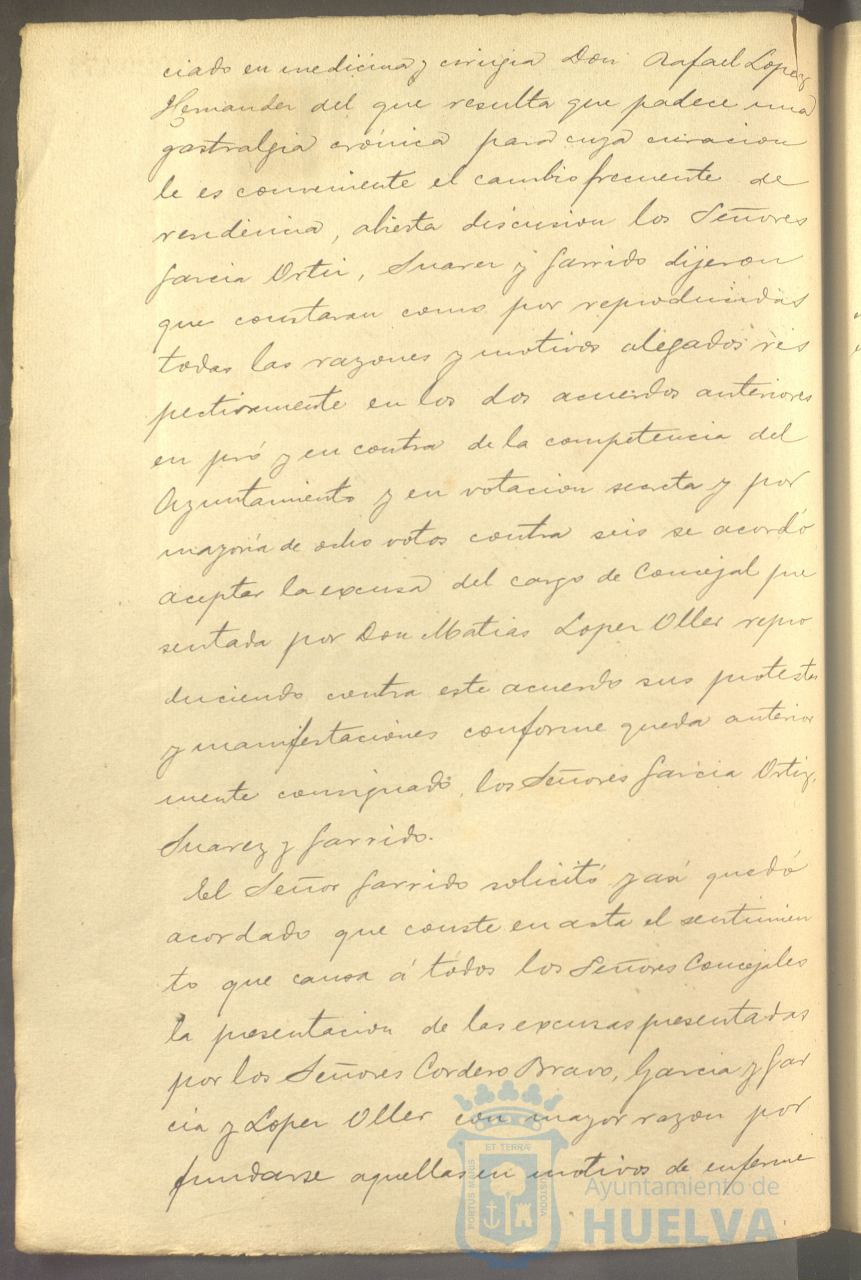 ciado en medicina y cirugia Don Rafael Lopez
Hernander del que resulta que padece una
gastralgia crónica para cuya curacion
le es conveniente el cambio frecuente de
residencia, abierta discusion los Señores
Garcia Ortiz, Suarez y Garrido dijeron
que constaran como por reproducidas
todas las razones y motivos alegados res
pectivamente en los dos acuerdos anteriores
en pró y en contra de la competencia del
Ayuntamiento y en votacion secreta y por
mayoria de ocho votos contra seis se acordó
aceptar la excusa del cargo de Concejal pre
sentada por Don Matias Loper Oller repro
duciendo contra este acuerdo sus protestas
y manifestaciones conforme queda anterior
mente consignado, los Señores Garcia Ortiz,
Suarez y Garrido.
El Señor Garrido solicitó y asi quedó
acordado que conste en acta el sentimien
to que causa á todos los Señores Concejales
la presentacion de las excusas presentadas
por los Señores Cordero Bravo, Garcia y Gar
cia y Loper Oller con mayor razon por
fundarse aquellas en motivos de enferme
ET TERRÆ
PORTUS MARIS
CUSTODIA
Ayuntamiento de
HUELVA